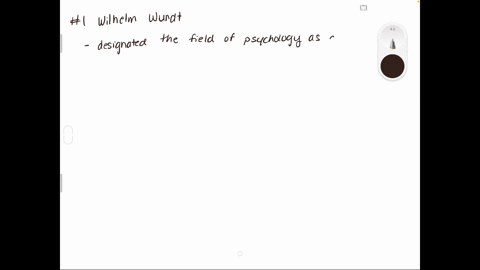 #1 Wilhelm Wundt
- designated the field of psychology as